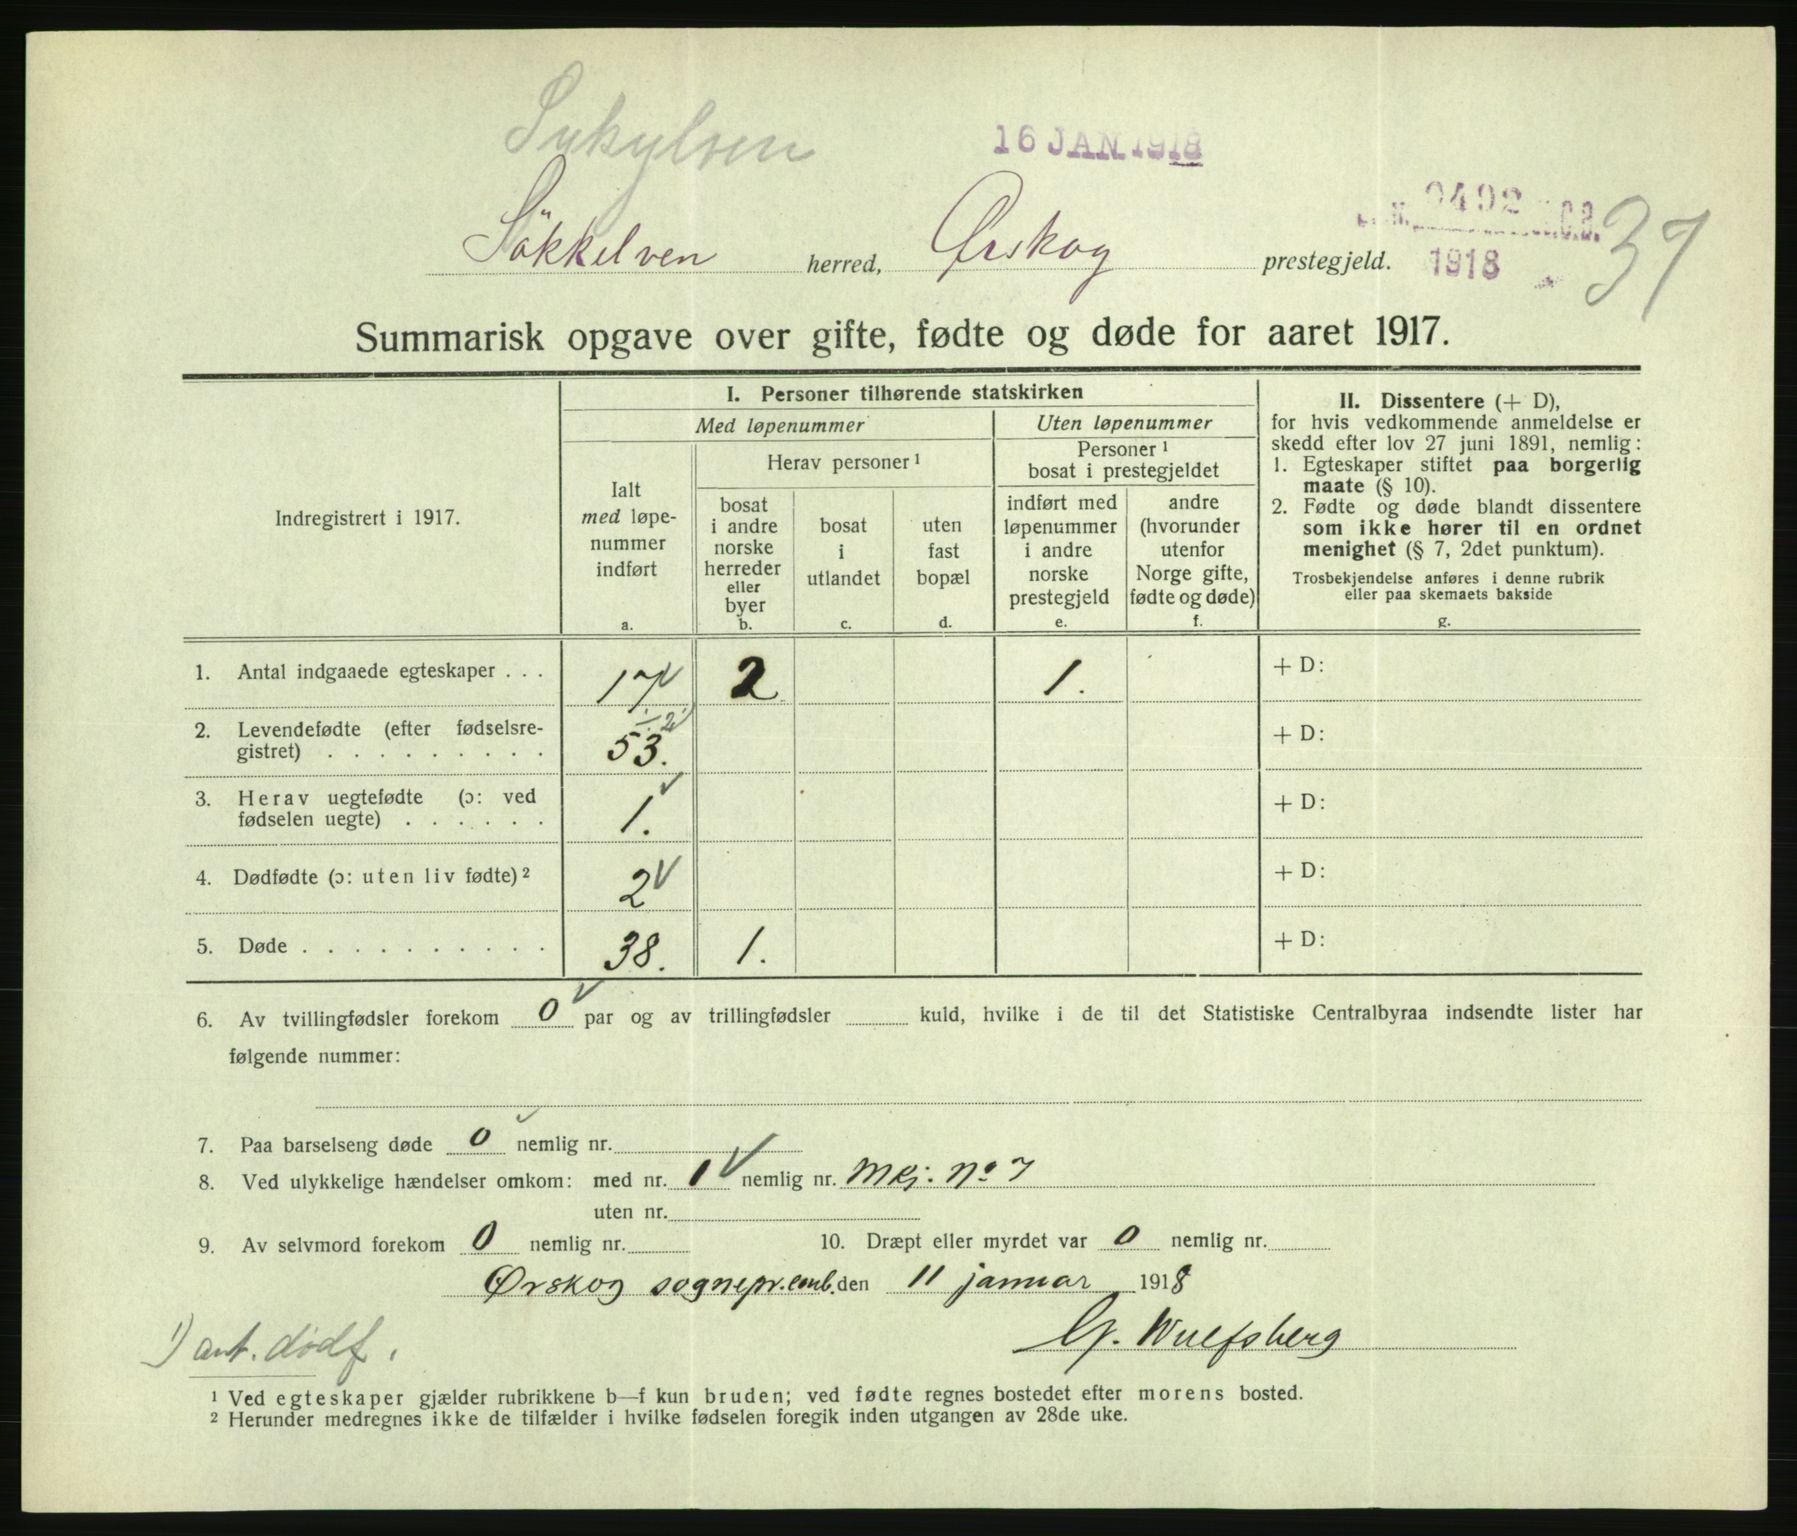 Sykylven
16 JAN 1918
Sökkelven herred, Ørskog prestegjeld.
1918
37
Summarisk opgave over gifte, fødte og døde for aaret 1917.
Indregistrert i 1917.
I. Personer tilhørende statskirken
Med løpenummer
Uten løpenummer
Ialt
med løpe-
nummer
indført
a.
Herav personer ¹
bosat
i andre
norske
herreder
eller
byer
b.
bosat
i
utlandet
c.
uten
fast
bopæl
d.
Personer ¹
bosat i prestegjeldet
indført med
løpenummer
i andre
norske
prestegjeld
e.
andre
(hvorunder
utenfor
Norge gifte,
fødte og døde)
f.
II. Dissentere (+ D),
for hvis vedkommende anmeldelse er
skedd efter lov 27 juni 1891, nemlig:
1. Egteskaper stiftet paa borgerlig
maate (§ 10).
2. Fødte og døde blandt dissentere
som ikke hører til en ordnet
menighet (§ 7, 2det punktum).
Trosbekjendelse anføres i denne rubrik
eller paa skemaets bakside
g.
1. Antal indgaaede egteskaper . . . 17 2 1. + D:
2. Levendefødte (efter fødselsre-
gistret) . . . . . . . . . 53. + D:
3. Herav uegtefødte (ɔ: ved
fødselen uegte) . . . . . . 1. + D:
4. Dødfødte (ɔ: uten liv fødte) ² 2 + D:
5. Døde . . . . . . . . . . 38. 1. + D:
6. Av tvillingfødsler forekom 0 par og av trillingfødsler kuld, hvilke i de til det Statistiske Centralbyraa indsendte lister har
følgende nummer:
7. Paa barselseng døde 0 nemlig nr.
8. Ved ulykkelige hændelser omkom: med nr. 1 nemlig nr. Mkj. No 7
uten nr.
9. Av selvmord forekom 0 nemlig nr. 10. Dræpt eller myrdet var 0 nemlig nr.
Ørskog sognepr.emb. den 11 januar 1918
Wulfsberg
1) ant. dødf.
¹ Ved egteskaper gjælder rubrikkene b—f kun bruden; ved fødte regnes bostedet efter morens bosted.
² Herunder medregnes ikke de tilfælder i hvilke fødselen foregik inden utgangen av 28de uke.